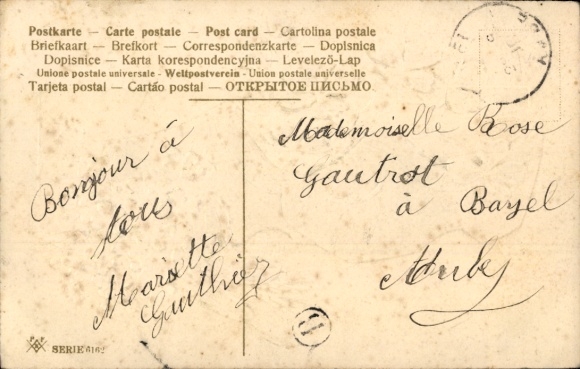 Postkarte — Carte postale — Post card — Cartolina postale
Briefkaart — Brefkort — Correspondenzkarte — Dopisnica
Dopisnice — Karta korespondencyjna — Levelező-Lap
Unione postale universale - Weltpostverein - Union postale universelle
Tarjeta postal — Cartão postal — ОТКРЫТОЕ ПИСЬМО.
Bonjour à
tous
Marisette
Gauthier
Mademoiselle Rose
Gautrot
à Bayel
Aube
SERIE 6162